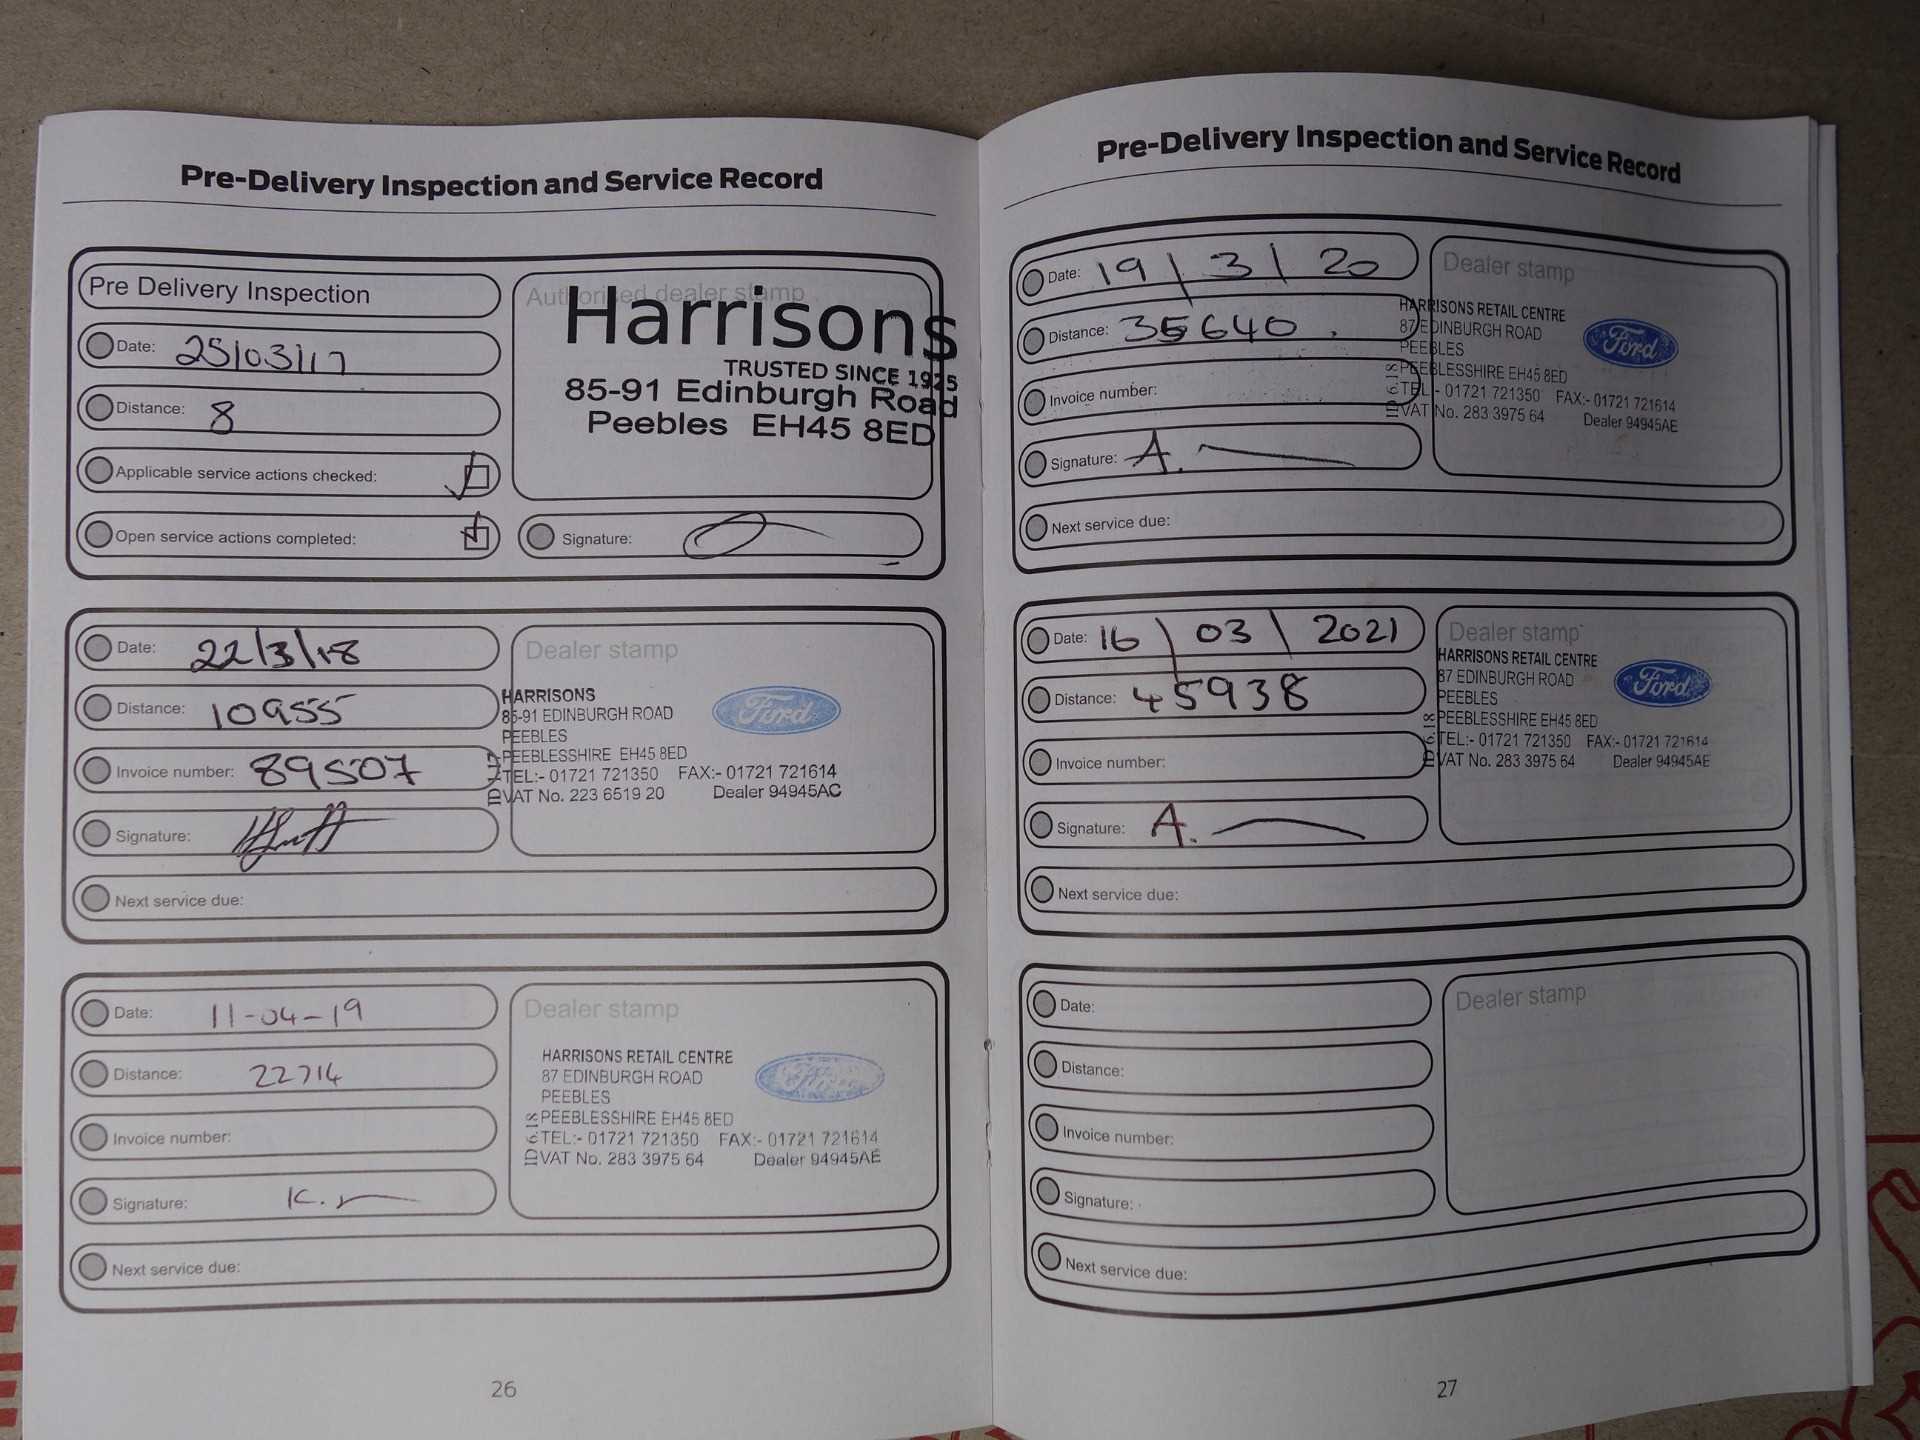 Pre-Delivery Inspection and Service Record
Pre Delivery Inspection
Date: 25/03/17
Distance: 8
Applicable service actions checked:
Open service actions completed:
Authorised dealer stamp
Harrisons
TRUSTED SINCE 1925
85-91 Edinburgh Road
Peebles EH45 8ED
Signature:
Date: 22/3/18
Distance: 10955
Invoice number: 89507
Signature:
Next service due:
Dealer stamp
HARRISONS
85-91 EDINBURGH ROAD
PEEBLES
PEEBLESSHIRE EH45 8ED
TEL:- 01721 721350 FAX:- 01721 721614
VAT No. 223 6519 20 Dealer 94945AC
Ford
Date: 11-04-19
Distance: 22714
Invoice number:
Signature: K.
Next service due:
Dealer stamp
HARRISONS RETAIL CENTRE
87 EDINBURGH ROAD
PEEBLES
PEEBLESSHIRE EH45 8ED
TEL:- 01721 721350 FAX:- 01721 721614
VAT No. 283 3975 64 Dealer 94945AE
Ford
26
Pre-Delivery Inspection and Service Record
Date: 19/3/20
Distance: 35640
Invoice number:
Signature: A.
Next service due:
Dealer stamp
HARRISONS RETAIL CENTRE
87 EDINBURGH ROAD
PEEBLES
PEEBLESSHIRE EH45 8ED
TEL:- 01721 721350 FAX:- 01721 721614
VAT No. 283 3975 64 Dealer 94945AE
Ford
Date: 16/03/2021
Distance: 45938
Invoice number:
Signature: A.
Next service due:
Dealer stamp
HARRISONS RETAIL CENTRE
87 EDINBURGH ROAD
PEEBLES
PEEBLESSHIRE EH45 8ED
TEL:- 01721 721350 FAX:- 01721 721614
VAT No. 283 3975 64 Dealer 94945AE
Ford
Date:
Distance:
Invoice number:
Signature:
Next service due:
Dealer stamp
27